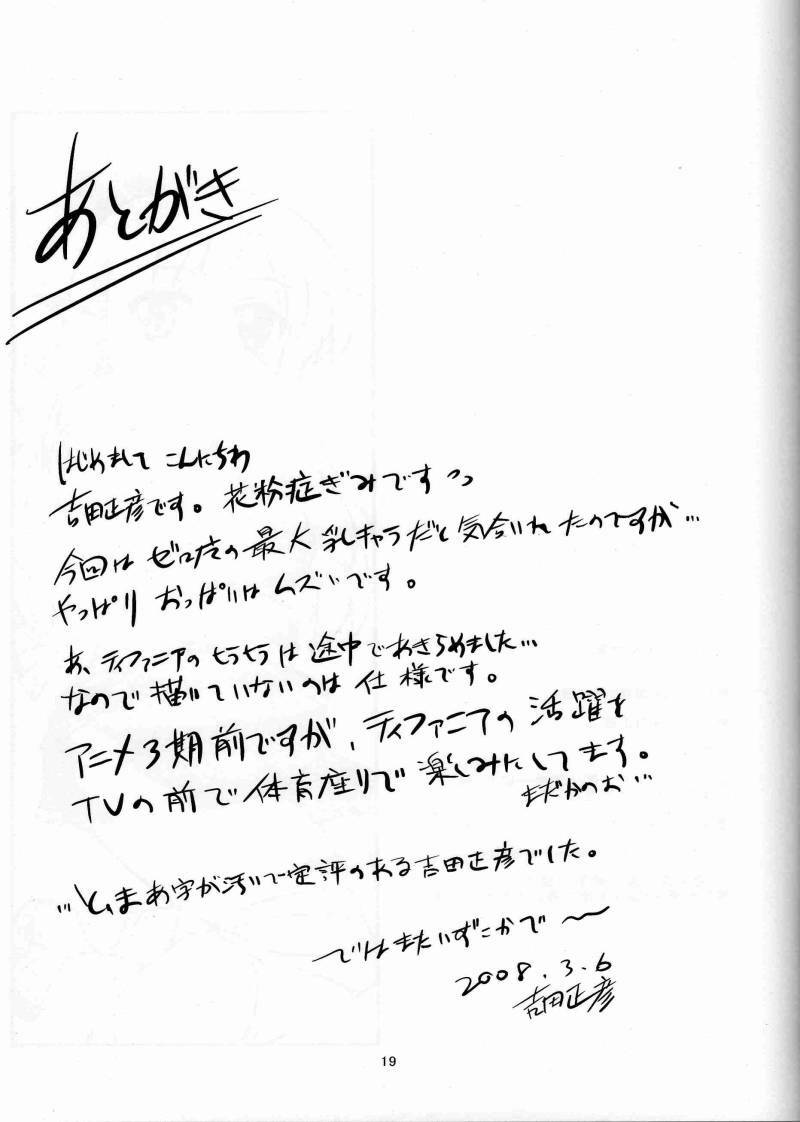 あとがき
はじめまして こんにちわ
吉田正彦です。花粉症ぎみですっっ
今回は ゼロ魔の最大乳キャラだと気合いれたのですが…
やっぱり おっぱいは ムズいです。
あ、ティファニアのヒラヒラは途中であきらめました…
なので描いていないのは仕様です。
アニメ3期前ですが、ティファニアの活躍を
TVの前で体育座りで楽しみにしてます。
まだかのお…
…と、まあ字が汚いで定評のある吉田正彦でした。
ではまたいずこかで〜
2008.3.6
吉田正彦
19